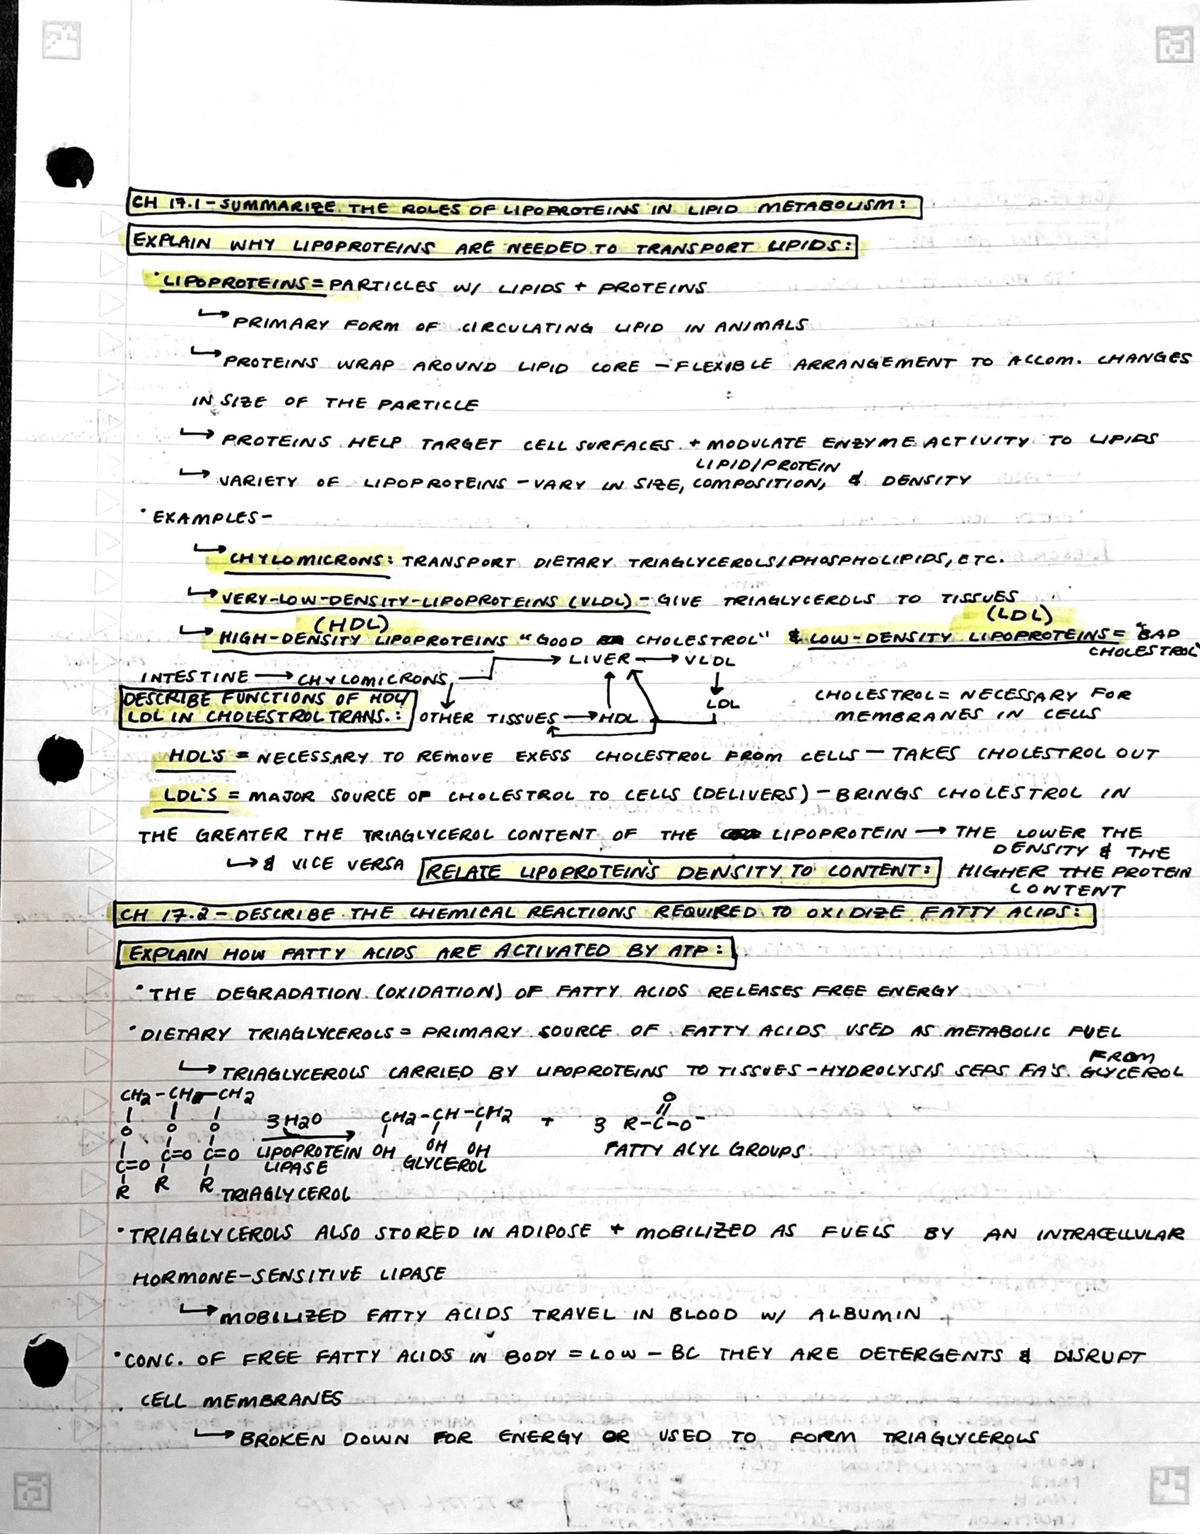 CH 17.1 - SUMMARIZE THE ROLES OF LIPOPROTEINS IN LIPID METABOLISM:
EXPLAIN WHY LIPOPROTEINS ARE NEEDED TO TRANSPORT LIPIDS:
• LIPOPROTEINS = PARTICLES W/ LIPIDS + PROTEINS
↳ PRIMARY FORM OF CIRCULATING LIPID IN ANIMALS
↳ PROTEINS WRAP AROUND LIPID CORE - FLEXIBLE ARRANGEMENT TO ACCOM. CHANGES
IN SIZE OF THE PARTICLE
↳ PROTEINS HELP TARGET CELL SURFACES + MODULATE ENZYME ACTIVITY TO LIPIDS
LIPID/PROTEIN
↳ VARIETY OF LIPOPROTEINS - VARY IN SIZE, COMPOSITION, & DENSITY
• EXAMPLES-
↳ CHYLOMICRONS: TRANSPORT DIETARY TRIAGLYCEROLS/PHOSPHOLIPIDS, ETC.
↳ VERY-LOW-DENSITY-LIPOPROTEINS (VLDL) - GIVE TRIAGLYCEROLS TO TISSUES
(HDL) (LDL)
↳ HIGH-DENSITY LIPOPROTEINS "GOOD CHOLESTROL" & LOW-DENSITY LIPOPROTEINS = "BAD
CHOLESTROL"
→ LIVER → VLDL
INTESTINE → CHYLOMICRONS
DESCRIBE FUNCTIONS OF HDL/
LDL IN CHOLESTROL TRANS.: OTHER TISSUES → HDL LDL
CHOLESTROL = NECESSARY FOR
MEMBRANES IN CELLS
HDL'S = NECESSARY TO REMOVE EXESS CHOLESTROL FROM CELLS - TAKES CHOLESTROL OUT
LDL'S = MAJOR SOURCE OF CHOLESTROL TO CELLS (DELIVERS) - BRINGS CHOLESTROL IN
THE GREATER THE TRIAGLYCEROL CONTENT OF THE LIPOPROTEIN → THE LOWER THE
DENSITY & THE
HIGHER THE PROTEIN
CONTENT
↳ & VICE VERSA
RELATE LIPOPROTEIN'S DENSITY TO CONTENT:
CH 17.2 - DESCRIBE THE CHEMICAL REACTIONS REQUIRED TO OXIDIZE FATTY ACIDS:
EXPLAIN HOW FATTY ACIDS ARE ACTIVATED BY ATP:
• THE DEGRADATION (OXIDATION) OF FATTY ACIDS RELEASES FREE ENERGY
• DIETARY TRIAGLYCEROLS = PRIMARY SOURCE OF FATTY ACIDS USED AS METABOLIC FUEL
↳ TRIAGLYCEROLS CARRIED BY LIPOPROTEINS TO TISSUES - HYDROLYSIS SEPS FA'S FROM GLYCEROL
CH2 - CH - CH2 O
O O O 3H2O CH2 - CH - CH2 + 3 R-C-O-
C=O C=O C=O LIPOPROTEIN OH OH OH FATTY ACYL GROUPS
R R R LIPASE GLYCEROL
TRIAGLYCEROL
• TRIAGLYCEROLS ALSO STORED IN ADIPOSE + MOBILIZED AS FUELS BY AN INTRACELLULAR
HORMONE-SENSITIVE LIPASE
↳ MOBILIZED FATTY ACIDS TRAVEL IN BLOOD W/ ALBUMIN
• CONC. OF FREE FATTY ACIDS IN BODY = LOW - BC THEY ARE DETERGENTS & DISRUPT
CELL MEMBRANES
↳ BROKEN DOWN FOR ENERGY OR USED TO FORM TRIAGLYCEROLS